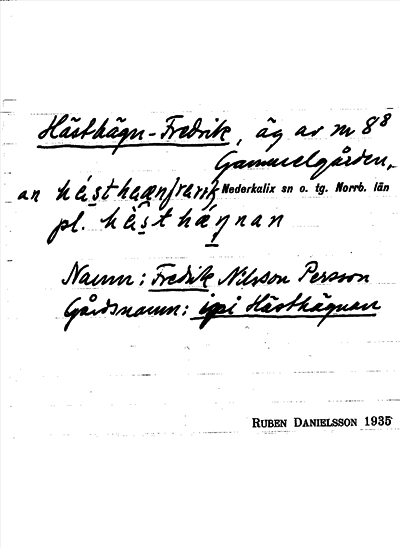 Hästhägn-Fredrik, äg av nr 8⁸
Gammelgården,
an Nederkalix sn o. tg. Norrb. län
pl.
Namn: Fredrik Nilsson Persson
Gårdsnamn: Hästhägnan
RUBEN DANIELSSON 1935